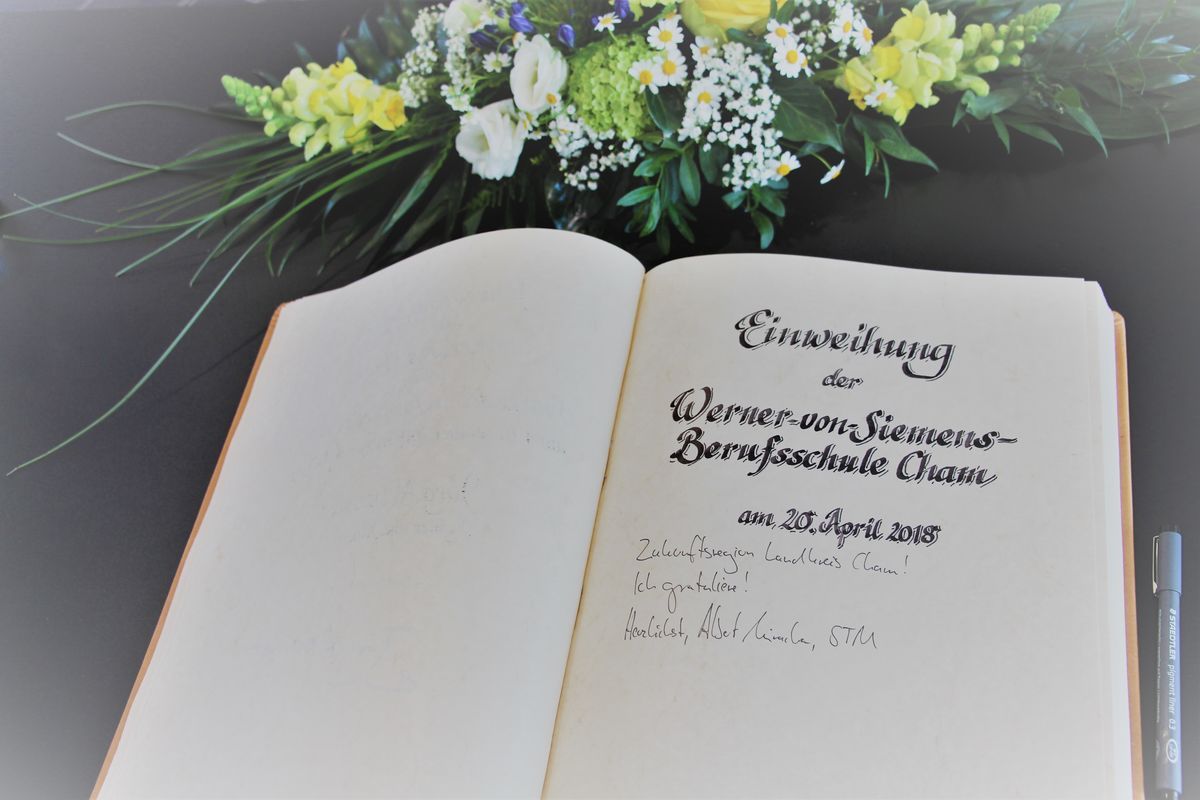 Einweihung
der
Werner-von-Siemens-
Berufsschule Cham
am 20. April 2018
Zukunftsregion Landkreis Cham!
Ich gratuliere!
Herzlichst, Albert STM
STAEDTLER pigment liner 0.3